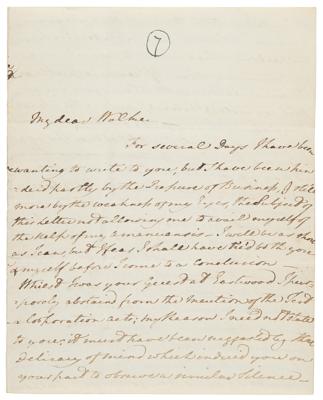 7
My dear Walker
For several Days I have been
wanting to write to you, but I have been hin
dered partly by the Pressure of Business, & still
more by the weakness of my Eyes, the Subject of
this letter not allowing me to avail myself of
the help of my amanuensis. I will be as short
as I can, but I fear I shall have tired both you
& myself before I come to a conclusion
Whilst I was your guest at Eastwood I pur
posely abstain from the mention of the Test
& Corporation acts; my Reason I need not state
to you; it must have been suggested by the
Delicacy of mind which induced you on
your part to observe a similar Silence